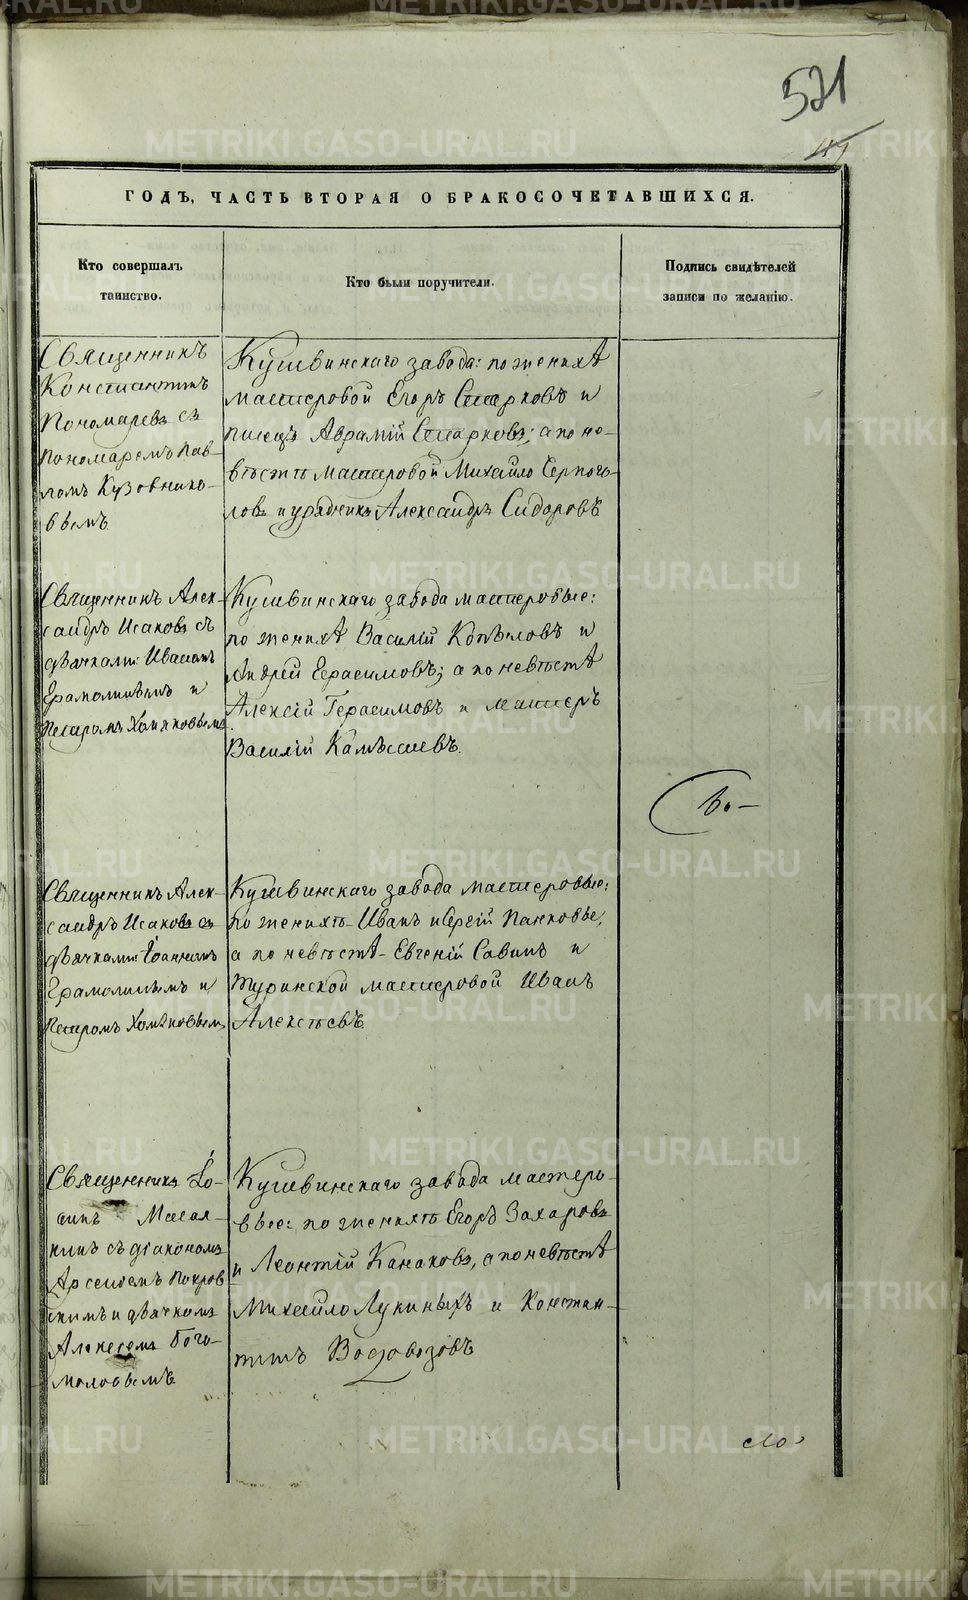 521
ГОДЪ, ЧАСТЬ ВТОРАЯ О БРАКОСОЧЕТАВШИХСЯ.
Кто совершалъ
таинство.
Кто были поручители.
Подпись свидѣтелей
записи по желанію.
Священникъ
Константинъ
Пономаревъ съ
пономаремъ Пав-
ломъ Кузовнико-
вымъ
Кушвинскаго завода: по женихѣ
мастеровой Егоръ Старковъ и
писецъ Аврамій Старковъ; а по не-
вѣстѣ мастеровой Михайло Черного-
ловъ и урядникъ Александръ Сидоровъ
Священникъ Алек-
сандръ Исаковъ съ
дьячками: Иваномъ
и
Петромъ Хомяковымъ
Кушвинскаго завода мастеровые:
по женихѣ Василій и
Андрей Герасимовъ; а по невѣстѣ
Алексій Герасимовъ и мастеръ
Василій
Священникъ Алек-
сандръ Исаковъ съ
дьячками: Іоанномъ
и
Петромъ Хомяковымъ
Кушвинскаго завода мастеровые:
по женихѣ Иванъ и Сергій Панковы,
а по невѣстѣ Евгеній Савинъ и
Туринской мастеровой Иванъ
Алексѣевъ
Священникъ Іо-
сипъ
съ діакономъ
Арсеніемъ Покров
скимъ и дьячкомъ
Алексеемъ Бого-
моловымъ
Кушвинскаго завода мастеро-
вые: по женихѣ Егоръ Захаровъ
и Леонтій Канаковъ, а по невѣстѣ
Михайло Лукиныхъ и Констан-
тинъ Водовозовъ
METRIKI.GASO-URAL.RU